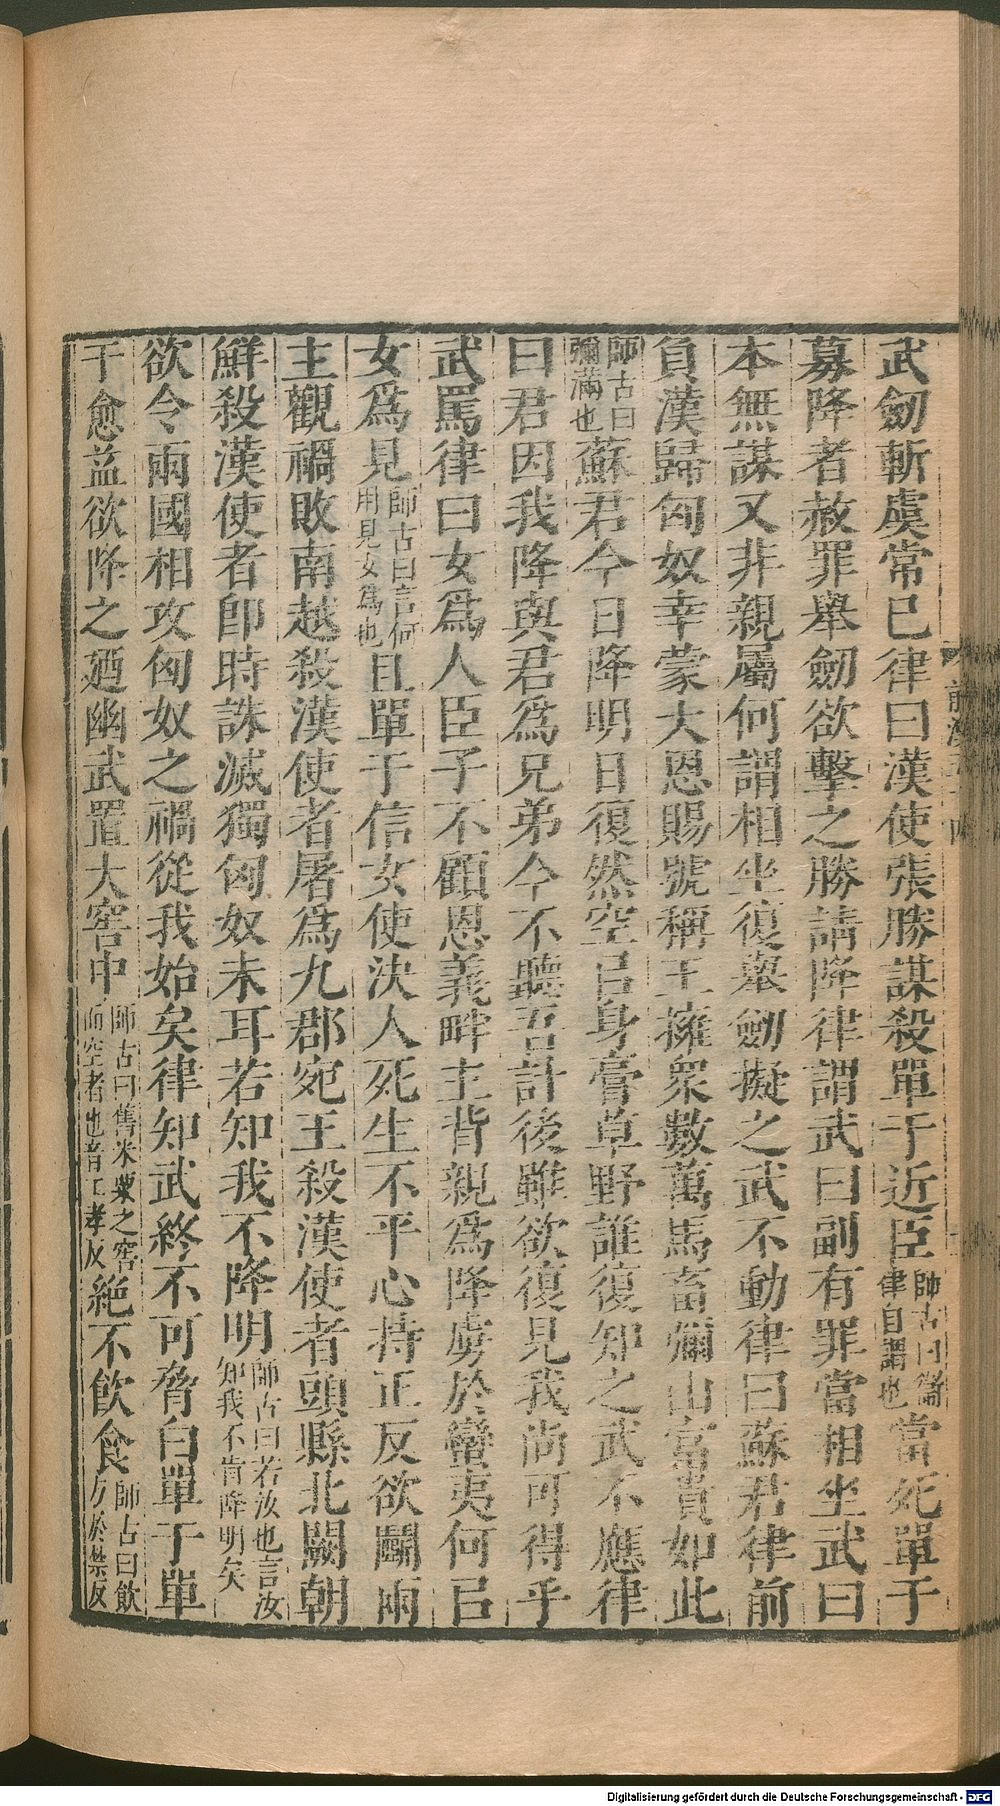 武劒斬虞常已律曰漢使張勝謀殺單于近臣師古曰衞律自謂也當死單于
募降者赦罪舉劒欲擊之勝請降律謂武曰副有罪當相坐武曰
本無謀又非親屬何謂相坐復舉劒擬之武不動律曰蘇君律前
負漢歸匈奴幸蒙大恩賜號稱王擁衆數萬馬畜彌山富貴如此
師古曰彌滿也蘇君今日降明日復然空㠯身膏草野誰復知之武不應律
曰君因我降與君爲兄弟今不聽吾計後雖欲復見我尚可得乎
武罵律曰女爲人臣子不顧恩義畔主背親爲降虜於蠻夷何㠯
女爲見師古曰言何用見女爲也且單于信女使決人死生不平心持正反欲鬭兩
主觀禍敗南越殺漢使者屠爲九郡宛王殺漢使者頭縣北闕朝
鮮殺漢使者卽時誅滅獨匈奴未耳若知我不降明師古曰若汝也言汝知我不肯降明矣
欲令兩國相攻匈奴之禍從我始矣律知武終不可脅白單于單
于愈益欲降之廼幽武置大窖中師古曰舊米粟之窖而空者也音工孝反絶不飲食師古曰飲
於禁反
Digitalisierung gefördert durch die Deutsche Forschungsgemeinschaft - DFG